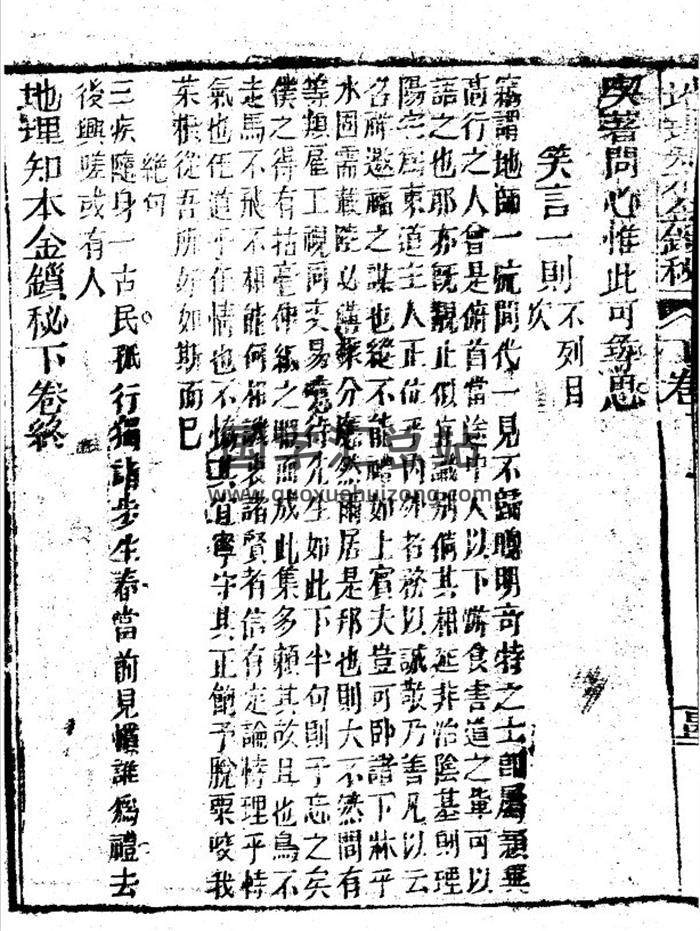 地理知本金鎖秘 下卷
喫著問心惟此可尋思
笑言一則不列目次
竊謂地師一席間代一見不歸聰明奇特之士卽屬穎異
高行之人曾是俯首當途中人以下懱食害道之輩可以
語之也耶亦旣觀止似宜識別倘其相延非治陰基則理
陽宅爲東道主人正位乎內外者務以誠敬乃善凡以云
名師邀福之謀也縱不能醴如上賓夫豈可卧諸下牀乎
水圖需 陸必 分 然 居是邦也則大不然間有
等類屋工視同交易 待先生如此下半句則予忘之矣
僕之得有拈毫伸紙之暇而成此集多賴其故且也鳥不
走馬不飛不相能何相譏哀諸賢者信有定論恃理乎恃
氣也任道乎任情也不 其宜寧守其正飽予脫粟咬我
菜根從吾所好如斯而已
絕句
三疾隨身一古民孤行獨詣步生春當前見慣誰爲禮去
後興嗟或有人
地理知本金鎖秘下卷終
国学汇总站
www.guoxuehuizong.com